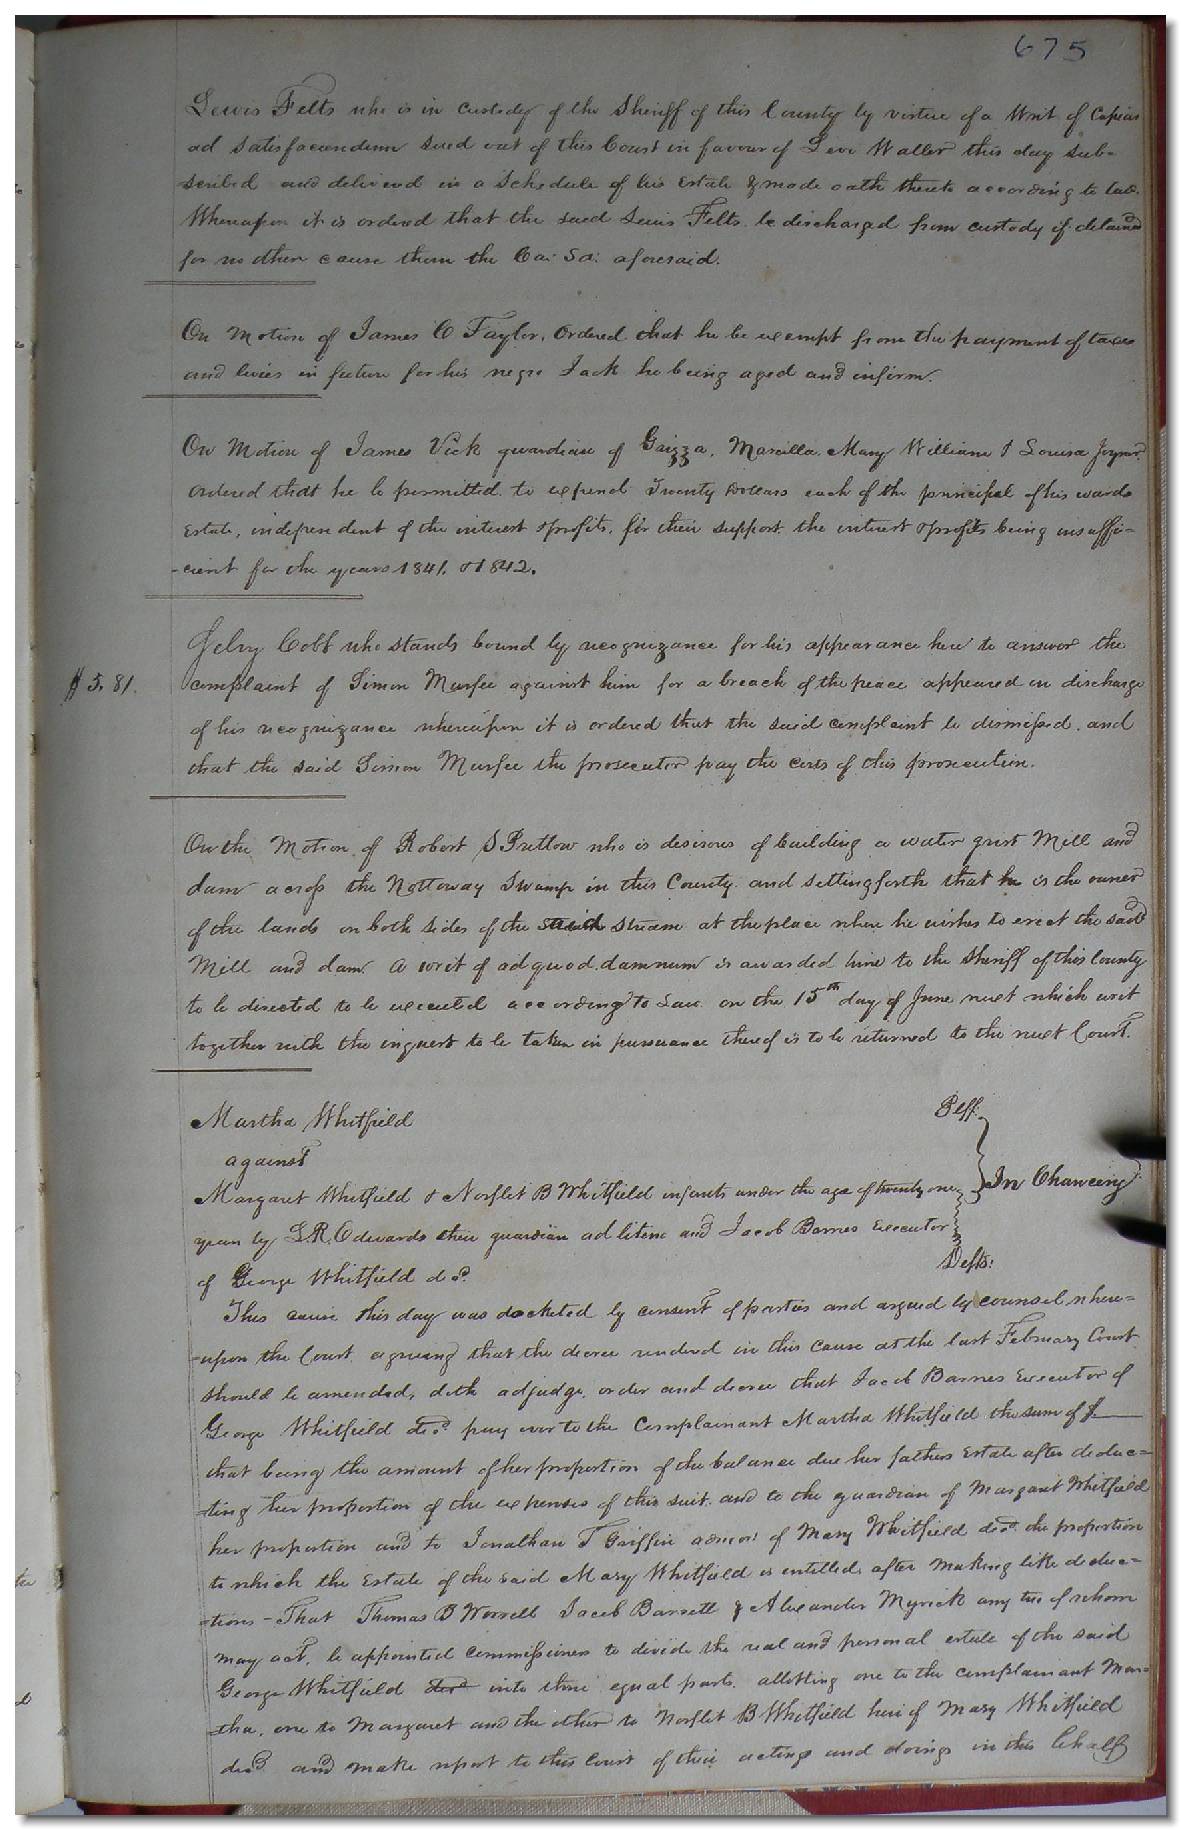 675
Lewis Felts who is in custody of the Sheriff of this County by virtue of a Writ of Capias
ad satisfaciendum sued out of this Court in favour of Levi Waller this day sub-
scribed and delivered in a Schedule of his Estate & made oath thereto according to law.
Whereupon it is ordered that the said Lewis Felts be discharged from custody if detained
for no other cause them the Ca: Sa: aforesaid.
On Motion of James C Taylor, Ordered that he be exempt from the payment of taxes
and levies in future for his negro Jack he being aged and infirm.
On Motion of James Vick guardian of Grizza, Marcilla, Mary William & Louisa Joyner
ordered that he be permitted to expend Twenty Dollars each of the principal of his wards
Estate, independent of the interest & profits, for their support, the interest & profits being insuffi-
-cient for the years 1841. & 1842.
Jelry Cobb who stands bound by recognizance for his appearance here to answer the
$5.81. complaint of Simon Murfee against him for a breach of the peace appeared in discharge
of his recognizance whereupon it is ordered that the said complaint be dismissed, and
that the said Simon Murfee the prosecutor pay the costs of this prosecution.
On the Motion of Robert S Pretlow who is desirous of building a water grist Mill and
dam across the Nottoway Swamp in this County and setting forth that he is the owner
of the lands on both sides of the stream at the place where he wishes to erect the said
Mill and dam. A writ of ad quod damnum is awarded him to the Sheriff of this County
to be directed to be executed according to Law on the 15th day of June next which writ
together with the inquest to be taken in pursuance thereof is to be returned to the next Court.
Martha Whitfield Plff.
against
Margaret Whitfield & Norflet B Whitfield infants under the age of twenty one In Chancery
years by L.R. Edwards their guardian ad litem and Jacob Barnes Executor
of George Whitfield decd. Defts:
This cause this day was docketed by consent of parties and argued by counsel where=
-upon the Court, agreeing that the decree rendered in this cause at the last February Court
should be amended, doth adjudge, order and decree that Jacob Barnes Executor of
George Whitfield decd. pay over to the Complainant Martha Whitfield the sum of $
that being the amount of her proportion of the balance due her fathers Estate after deduc=
-ting her proportion of the expenses of this suit, and to the guardian of Margaret Whitfield
her proportion and to Jonathan T Griffin admor: of Mary Whitfield decd. the proportion
to which the Estate of the said Mary Whitfield is entitled, after making like deduc=
-tions - That Thomas B Worrell Jacob Barrett & Alexander Myrick any two of whom
may act, be appointed commissioners to divide the real and personal estate of the said
George Whitfield decd into three equal parts, allotting one to the complainant Mar=
-tha, one to Margaret and the other to Norflet B Whitfield heir of Mary Whitfield
decd and make report to this Court of their actings and doings in this behalf